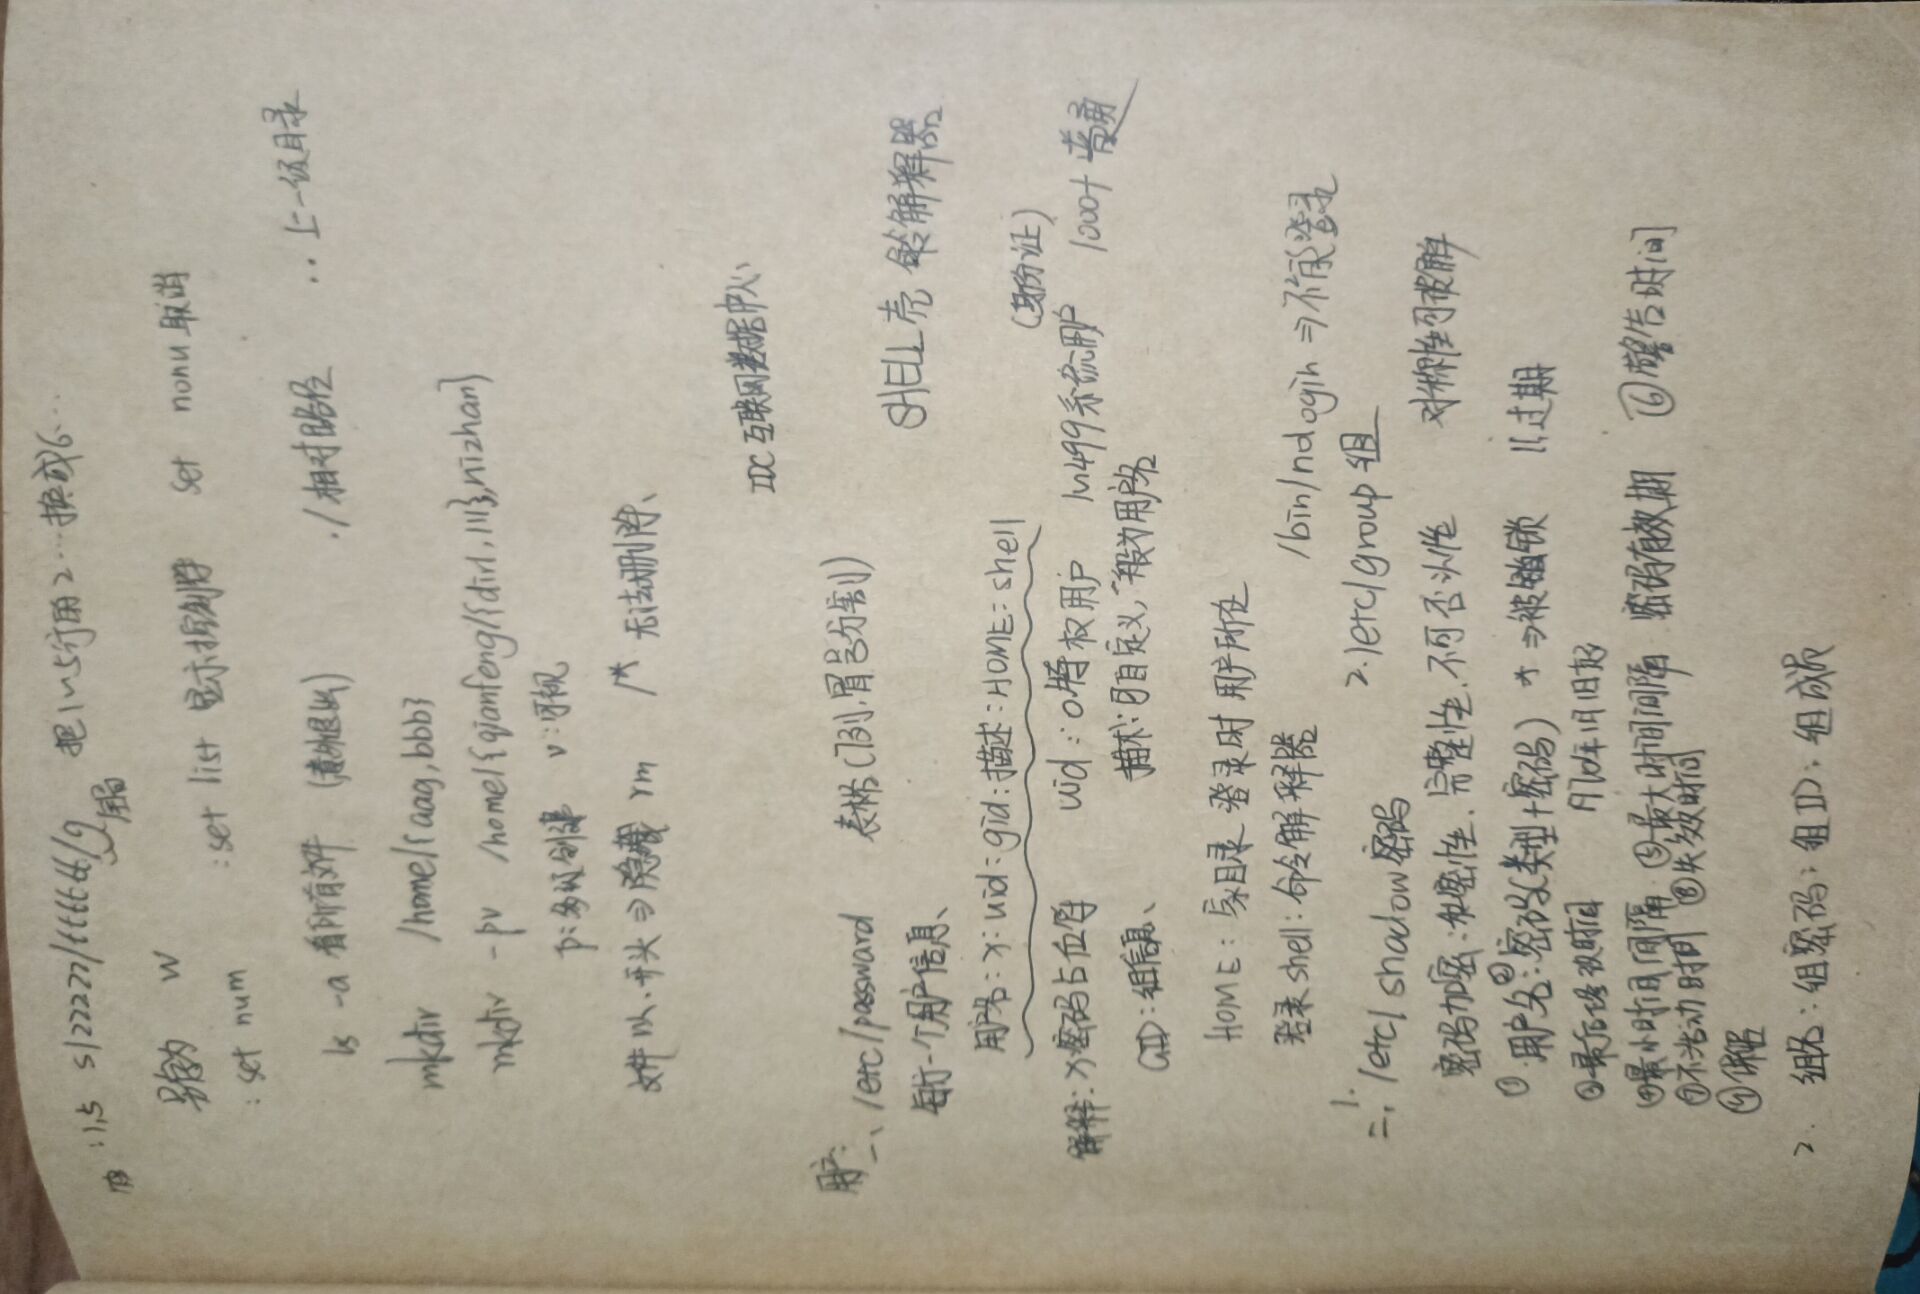 :1,5 s/22222/tttttt/g 把1~5行的2…换成6…
全局
另存为 w
:set num :set list 显示控制符 set nonu 取消
ls -a 看所有文件 (意外退出) ./相对路径 ..上一级目录
mkdir /home/{aaa,bbb}
mkdir -pv /home/{qianfeng/{dir1,111},nizhan}
p:多级创建 v:可视
文件以.开头⇒隐藏 rm /* 无法删除、
IDC 互联网数据中心
用户:
一、/etc/passward 表格(7列,冒号分割)
每行一个用户信息、
SHELL 壳 命令解释器
用户名:x:uid:gid:描述:HOME:shell
(身份证)
解释:x密码占位符 uid:0特权用户 1~499系统用户 1000+普通
GID:组信息、 描述:可自定义,一般为用户名
HOME:家目录 登录时用户所在
登录shell:命令解释器 /bin/nologin ⇒不能登录
二、1./etc/shadow密码 2./etc/group组
密码加密:私密性、完整性、不可否认性 对称性可破解
①用户名:②密码(类型+密码) *⇒被锁 !!过期
③最后修改时间 1970年1月1日起
④最小时间间隔 ⑤最大时间间隔 密码有效期 ⑥警告时间
⑦不活动时间 ⑧失效时间
⑨保留
2. 组名:组密码:组ID:组成员